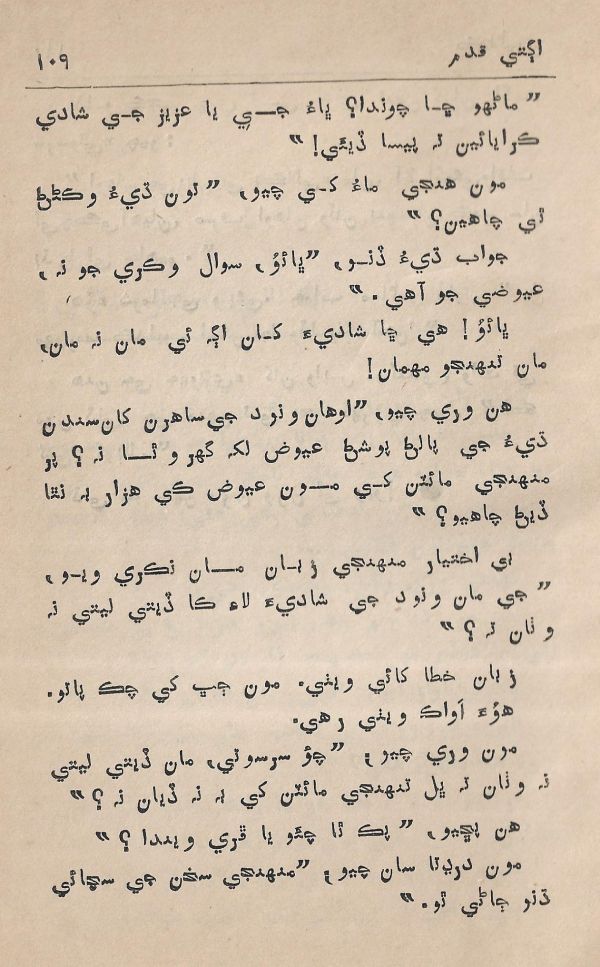 اڳتي قدم ۱۰۹
”ماڻهو ڇا چوندا؟ ڀاءُ جي يا عزيز جي شادي
ڪرايائين ته پيسا ڏيئي!“
مون هنجي ماءُ کي چيو، ”تون ڌيءُ وڪڻڻ
ٿي چاهين؟“
جواب ڌيءُ ڏنو، ”ڀائو، سوال وڪري جو نه،
عيوضي جو آهي.“
ڀائو! هي ڇا شاديءَ کان اڳ ئي مان نه مان،
مان تنهنجو مهمان!
هن وري چيو، ”اوهان ونود جي ساهرن کان سندن
ڌيءُ جي پالڻ پوشڻ عيوض لک گهرو ٿا نه؟ پر
منهنجي مائٽن کي مون عيوض ڪي هزار به نٿا
ڏيڻ چاهيو؟“
بي اختيار منهنجي زبان مان نڪري ويو،
”جي مان ونود جي شاديءَ لاءِ ڪا ڏيتي ليتي نه
وٺان ته؟“
زبان خطا کائي ويٺي. مون چپ کي چڪ پاتو.
هوءَ اَواڪ ويٺي رهي.
مون وري چيو؛ ”چؤ سرسوتي، مان ڏيتي ليتي
نه وٺان ته ڀل تنهنجي مائٽن کي به نه ڏيان نه؟“
هن پڇيو، ”پڪ ٿا چئو يا ڦري ويندا؟“
مون درڍتا سان چيو؛ ”منهنجي سخن جي سچائي
ڌنو ڄاڻي ٿو.“